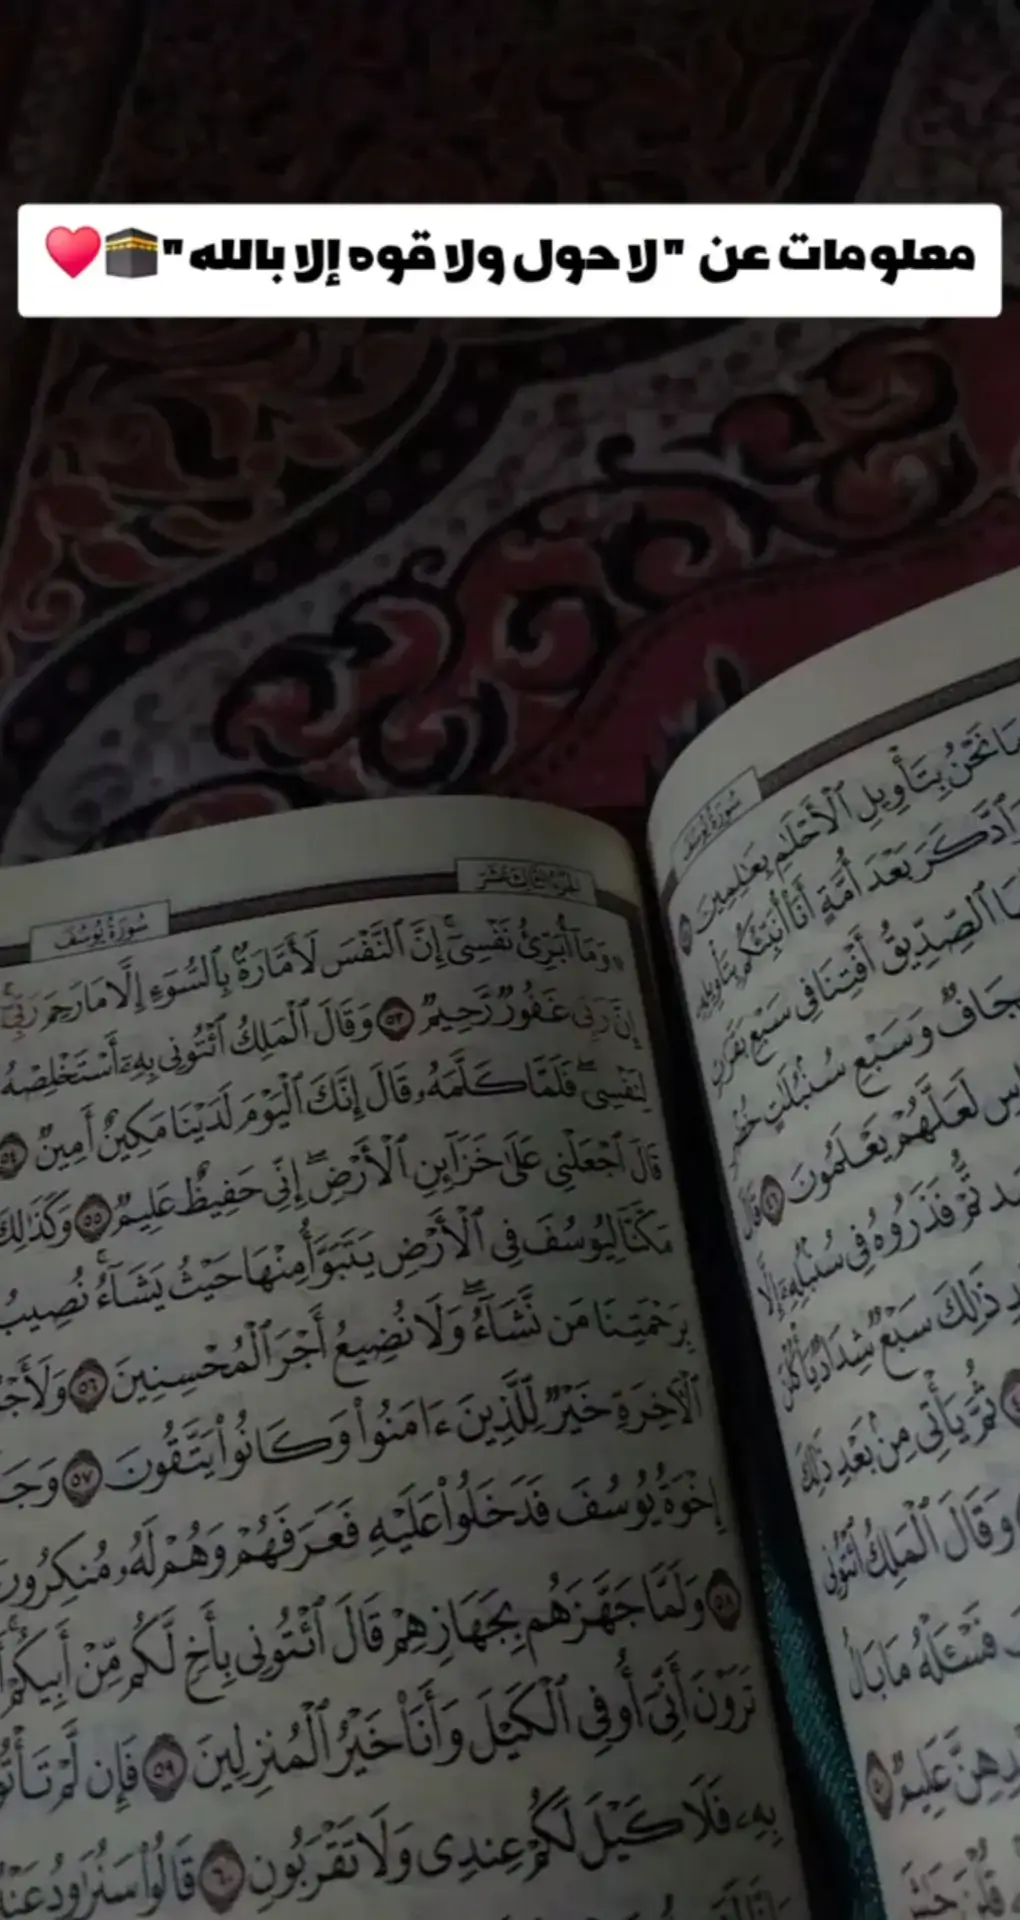 معلومات عن "لا حول ولا قوه إلا بالله"🕋♥️
سُورَةُ يُوسُفَ
مَا نَحْنُ بِتَأْوِيلِ ٱلْأَحْلَٰمِ بِعَٰلِمِينَ
وَٱدَّكَرَ بَعْدَ أُمَّةٍ أَنَا۠ أُنَبِّئُكُم بِتَأْوِيلِهِۦ
ٱلصِّدِّيقُ أَفْتِنَا فِى سَبْعِ بَقَرَٰتٍ
عِجَافٌ وَسَبْعِ سُنۢبُلَٰتٍ خُضْرٍ
لَعَلَّهُمْ يَعْلَمُونَ ٤٦ قَالَ
فَذَرُوهُ فِى سُنۢبُلِهِۦٓ إِلَّا
ذَٰلِكَ سَبْعٌ شِدَادٌ يَأْكُلْنَ
ثُمَّ يَأْتِى مِنۢ بَعْدِ ذَٰلِكَ
وَقَالَ ٱلْمَلِكُ ٱئْتُونِى
فَسْـَٔلْهُ مَا بَالُ
عَلِيمٌ ٥٠
قُلْنَ حَٰشَ
الجزء الثالث عشر
سُورَةُ يُوسُفَ
۞ وَمَآ أُبَرِّئُ نَفْسِىٓ ۚ إِنَّ ٱلنَّفْسَ لَأَمَّارَةٌۢ بِٱلسُّوٓءِ إِلَّا مَا رَحِمَ رَبِّىٓ ۚ
إِنَّ رَبِّى غَفُورٌ رَّحِيمٌ ٥٣ وَقَالَ ٱلْمَلِكُ ٱئْتُونِى بِهِۦٓ أَسْتَخْلِصْهُ
لِنَفْسِى ۖ فَلَمَّا كَلَّمَهُۥ قَالَ إِنَّكَ ٱلْيَوْمَ لَدَيْنَا مَكِينٌ أَمِينٌ ٥٤
قَالَ ٱجْعَلْنِى عَلَىٰ خَزَآئِنِ ٱلْأَرْضِ ۖ إِنِّى حَفِيظٌ عَلِيمٌ ٥٥ وَكَذَٰلِكَ
مَكَّنَّا لِيُوسُفَ فِى ٱلْأَرْضِ يَتَبَوَّأُ مِنْهَا حَيْثُ يَشَآءُ ۚ نُصِيبُ
بِرَحْمَتِنَا مَن نَّشَآءُ ۖ وَلَا نُضِيعُ أَجْرَ ٱلْمُحْسِنِينَ ٥٦
ٱلْءَاخِرَةِ خَيْرٌ لِّلَّذِينَ ءَامَنُوا۟ وَكَانُوا۟ يَتَّقُونَ ٥٧
إِخْوَةُ يُوسُفَ فَدَخَلُوا۟ عَلَيْهِ فَعَرَفَهُمْ وَهُمْ لَهُۥ مُنكِرُونَ
٥٨ وَلَمَّا جَهَّزَهُم بِجَهَازِهِمْ قَالَ ٱئْتُونِى بِأَخٍ لَّكُم مِّنْ أَبِيكُمْ ۚ
تَرَوْنَ أَنِّىٓ أُوفِى ٱلْكَيْلَ وَأَنَا۠ خَيْرُ ٱلْمُنزِلِينَ ٥٩ فَإِن لَّمْ
بِهِۦ فَلَا كَيْلَ لَكُمْ عِندِى وَلَا تَقْرَبُونِ ٦٠ قَالُوا۟ سَنُرَٰوِدُ عَنْهُ